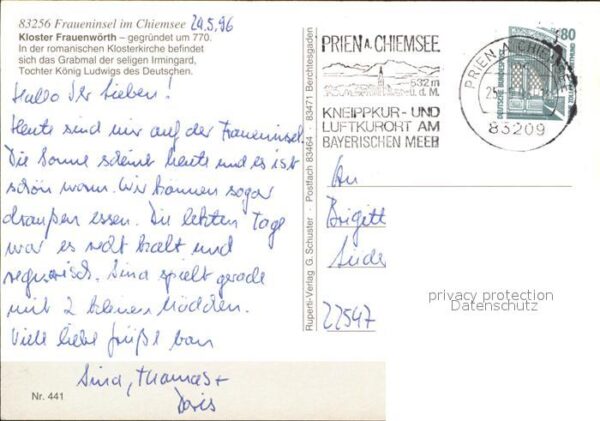 83256 Fraueninsel im Chiemsee 24.5.96
Kloster Frauenwörth – gegründet um 770.
In der romanischen Klosterkirche befindet
sich das Grabmal der seligen Irmingard,
Tochter König Ludwigs des Deutschen.
Hallo Ihr Lieben!
Heute sind wir auf der Fraueninsel.
Die Sonne scheint heute und es ist
schön warm. Wir können sogar
draußen essen. Die letzten Tage
war es recht kalt und
regnerisch. Sina spielt gerade
mit 2 kleinen Mädchen.
Viele liebe Grüße von
Sina, Thomas +
Doris
Nr. 441
Ruperti-Verlag G. Schuster · Postfach 83464 · 83471 Berchtesgaden
PRIEN A. CHIEMSEE
532 m
ü. d. M.
KNEIPPKUR- UND
LUFTKURORT AM
BAYERISCHEN MEER
PRIEN A CHIEMSEE
83209
80
An
Brigitt
22547
privacy protection
Datenschutz